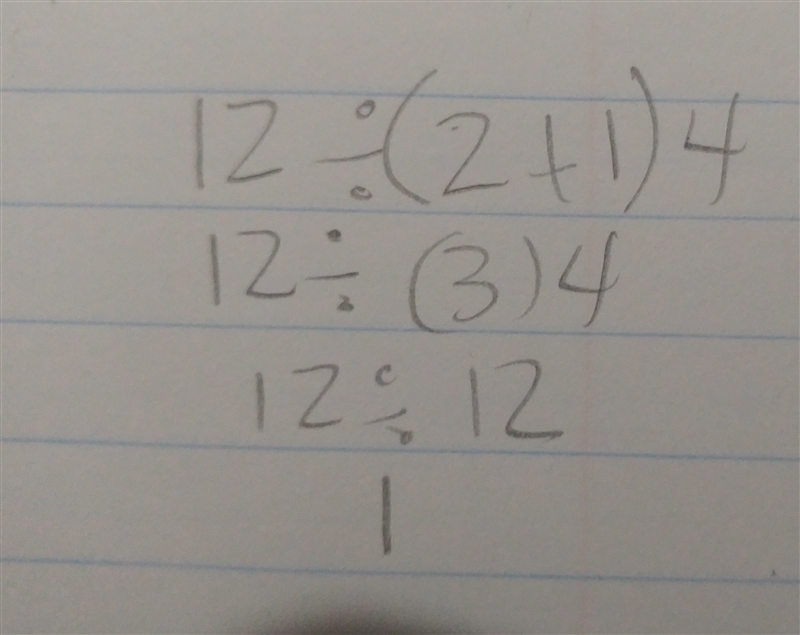 12 ÷ (2+1) 4
12 ÷ (3) 4
12 ÷ 12
1